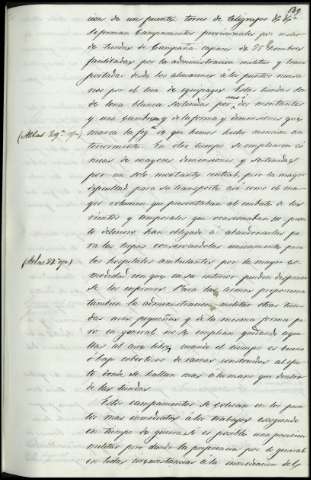 cias de un puente, torres de telégrafos &ª &ª
se forman Campamentos provisionales por medio
de tiendas de Campaña capaces de 25 hombres
facilitadas por la administracion militar y trans
portadas desde los almacenes a los puntos necesa
rios por el tren de equipages. Estas tiendas son
de lona blanca sostenidas por dos montantes
y una cumbrera y de la forma y dimensiones que
(Atlas Figª 170) marca la figª a que hemos hecho mencion an
teriormente. En otro tiempo se emplearon có
nicas de mayores dimensiones y sostenidas
por un solo montante central, pero la mayor
dificultad para su transporte asi como el ma
yor volumen que presentaban al embate de los
vientos y temporales que ocasionaban su pron
to deterioro han obligado á abandonarlas pa
ra las tropas conservandolas unicamente para
los hospitales ambulantes por la mayor co
modidad con que en su interior pueden disponer
se los enfermos. Para las armas proporciona
tambien la administracion militar otras tien
das mas pequeñas y de la misma forma pe
ro en general no se emplean quedando aque
llas al aire libre cuando el tiempo es bueno
ó bajo cobertizos de ramas construidos al efec
to donde se hallan mas a la mano que dentro
de las tiendas.
Estos campamentos se colocan en los pun
tos mas inmediatos á los trabajos exigiendo
en tiempo de guerra si es posible una posicion
militar pero dando la preferencia por lo general
en todas circunstancias á la inmediacion de los